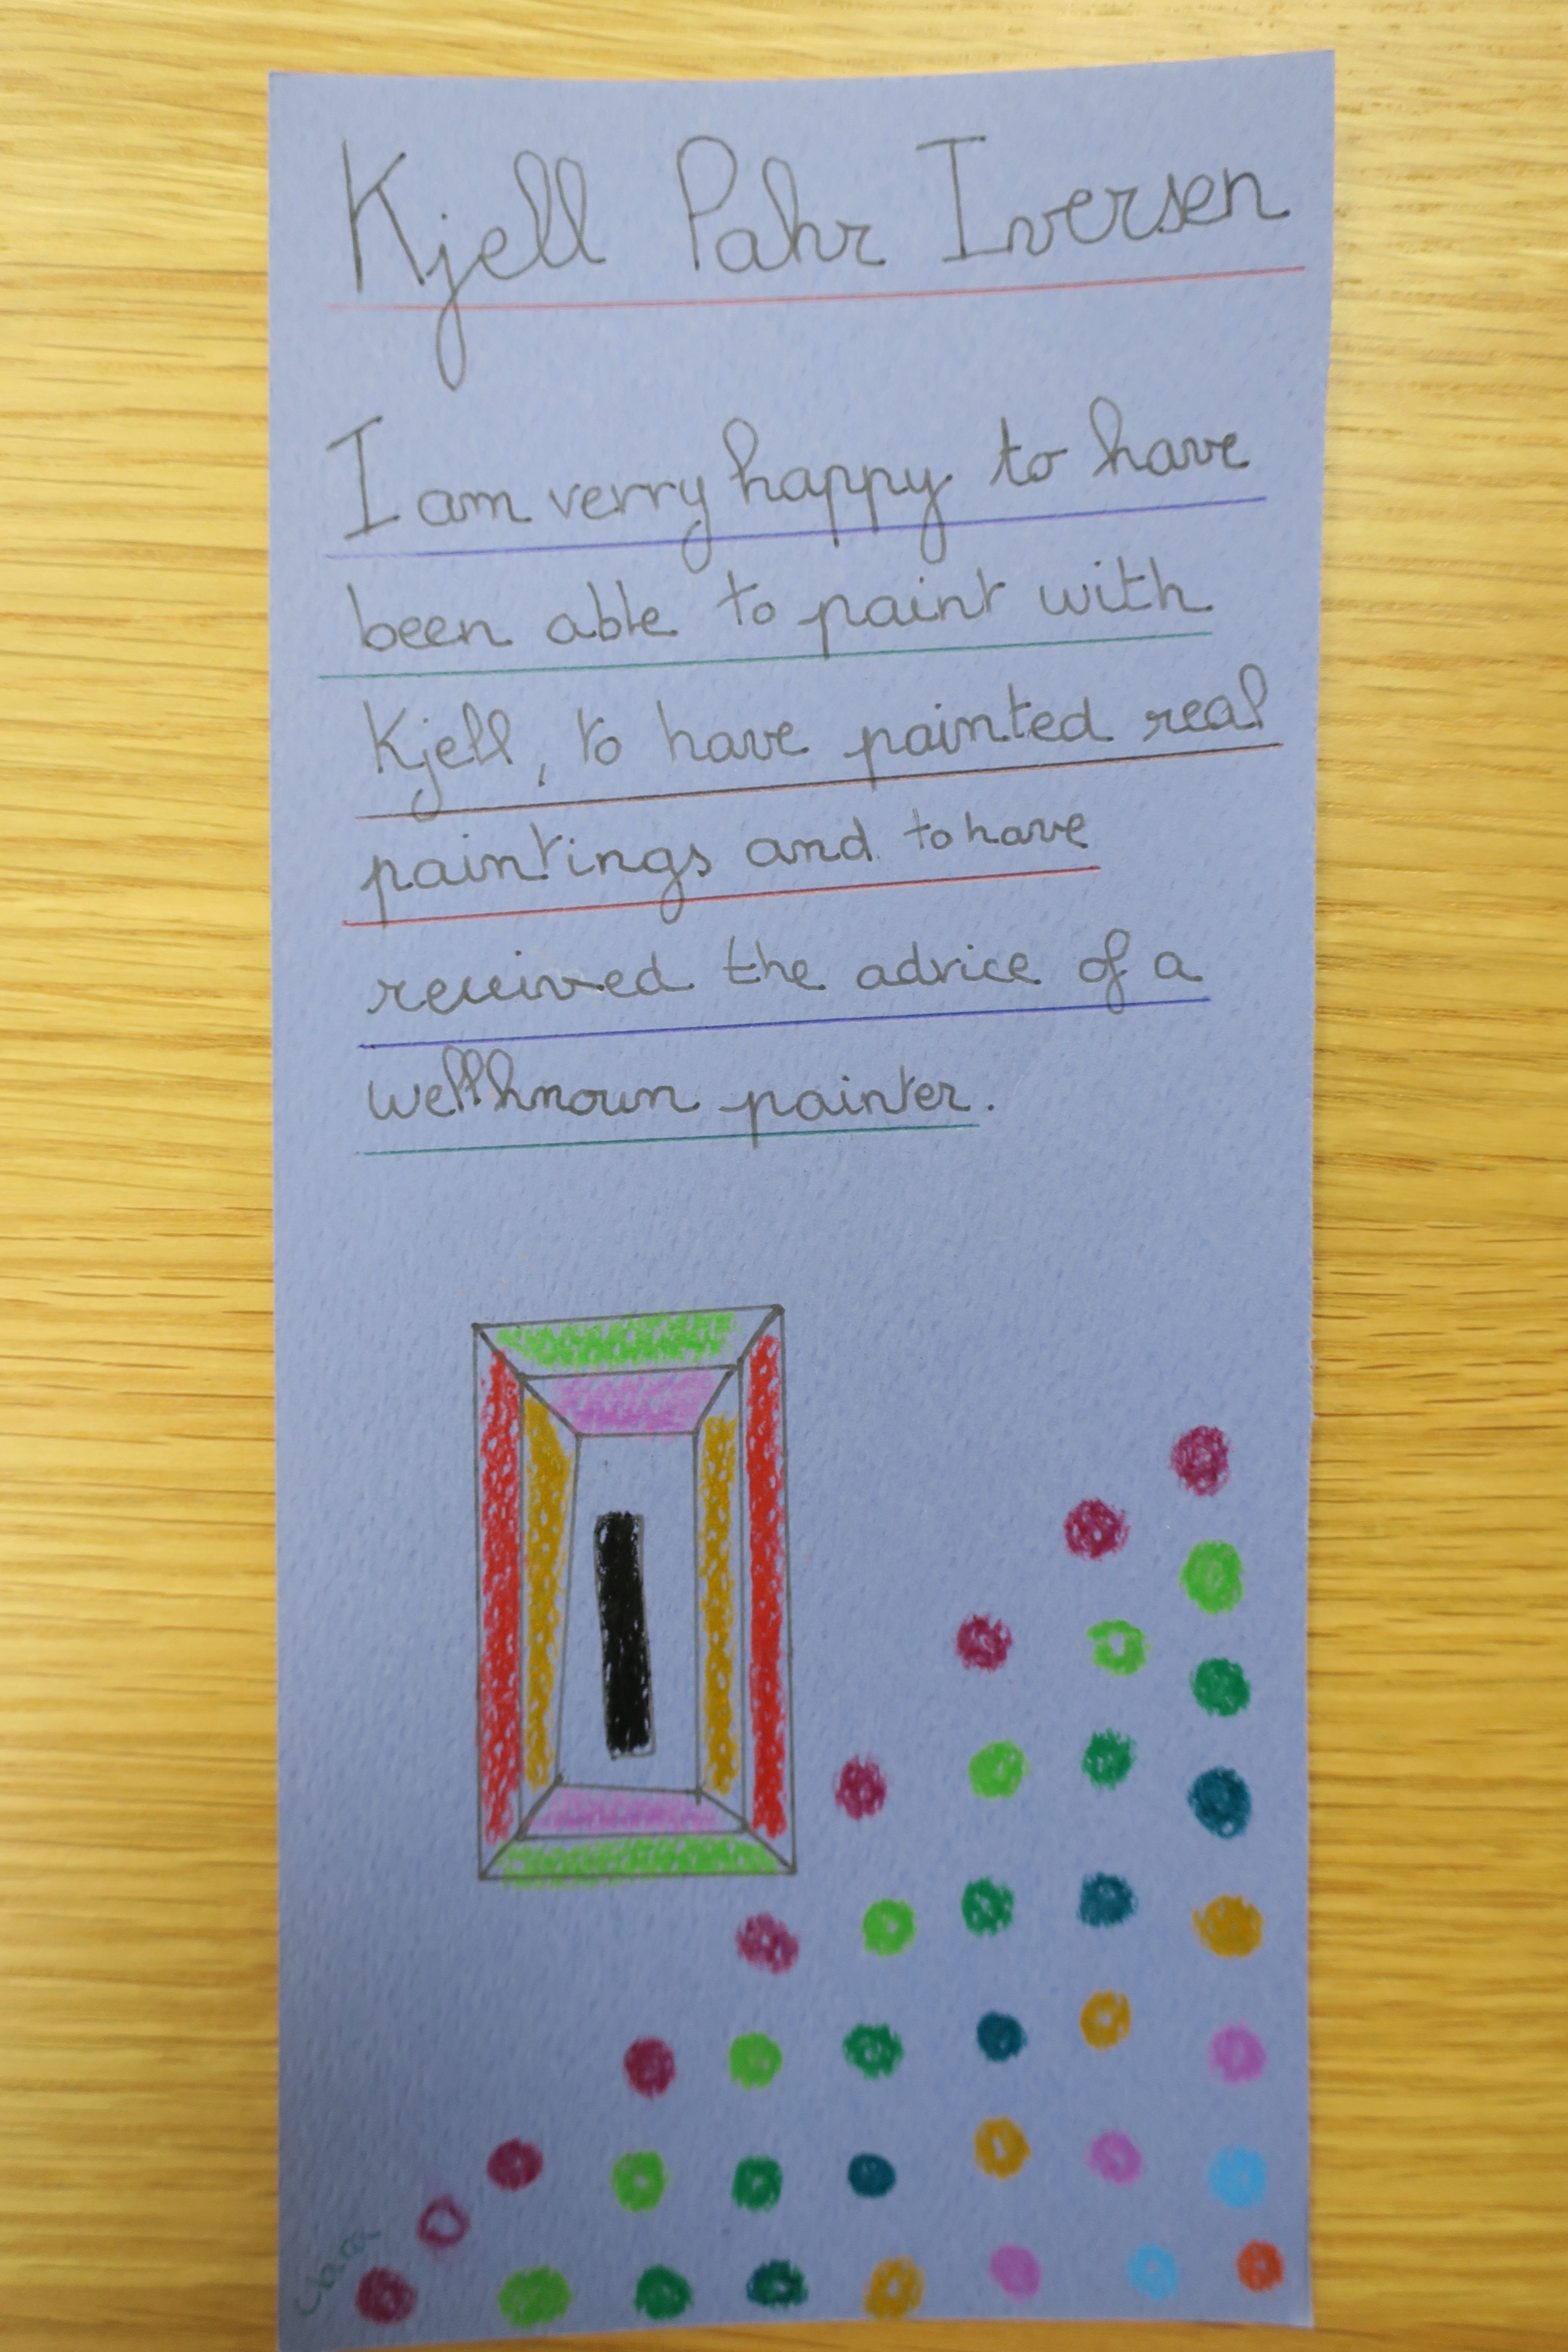 Kjell Pahr Iversen
I am verry happy to have
been able to paint with
Kjell, to have painted real
paintings and to have
received the advice of a
wellknown painter.